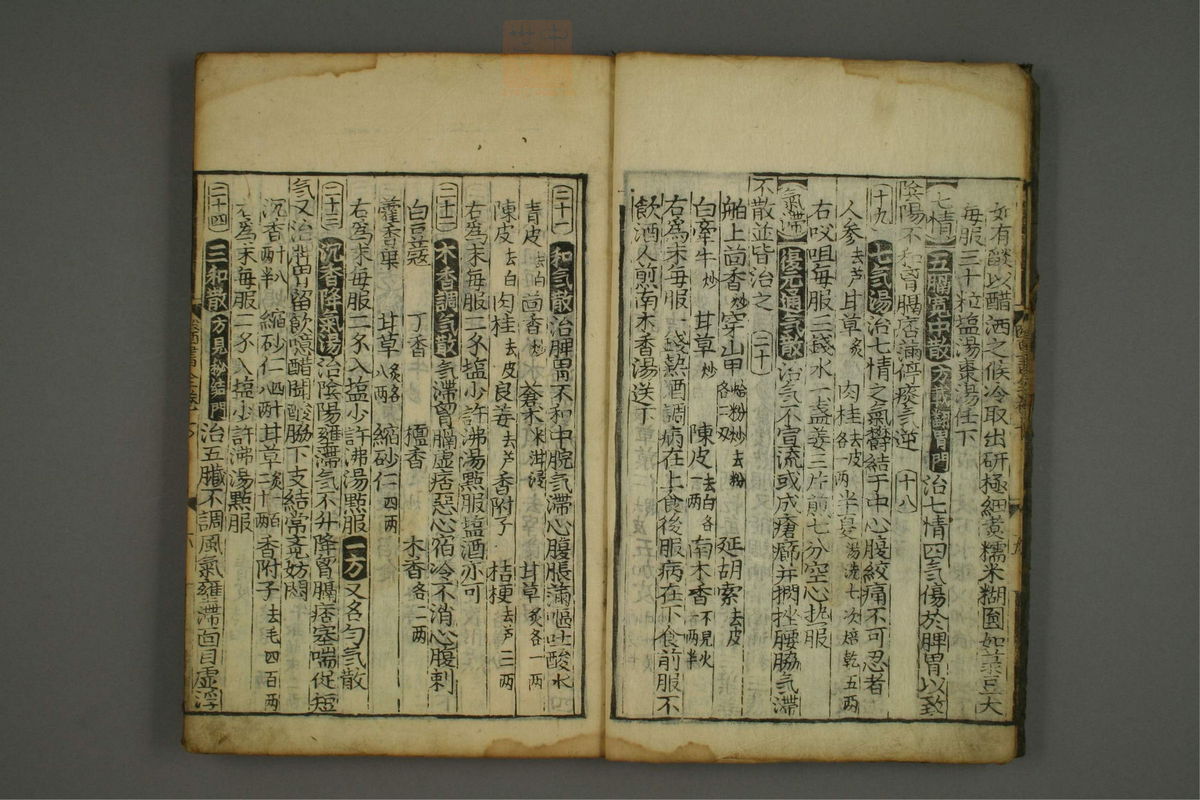 如有酸以醋洒之候冷取出研極細煑糯米糊圓如菉豆大
每服三十粒塩湯棗湯任下
七情 五膈寬中散 方載 胃門 治七情四气傷於脾胃以致
陰陽不和胷膈痞滿停痰气逆 十八
十九 七气湯 治七情之氣欝結于中心腹絞痛不可忍者
人参去芦 甘草炙 肉桂去皮各一兩 半夏湯洗七次焙乾五兩
右㕮咀每服三錢水一盞姜三片煎七分空心热服
氣滯 復元通气散 治气不宣流或成瘡癤并挫腰脇气滯
不散並皆治之 二十
舶上茴香炒 穿山甲蛤粉炒去粉各二兩 延胡索去皮
白牽牛炒 甘草炒 陳皮去白各一兩 南木香不見火一兩半
右爲末每服一錢熱酒調病在上食後服病在下食前服不
飲酒人煎南木香湯送下
二十一 和气散 治脾胃不和中脘气滯心腹脹滿嘔吐酸水
青皮去白 茴香炒 蒼术米泔浸 甘草炙各一兩
陳皮去白 肉桂去皮 良姜去芦 香附子 桔梗去芦二兩
右爲末每服二錢塩少許沸湯點服塩酒亦可
二十二 木香調气散 气滯胷膈虛痞惡心宿冷不消心腹刺
白豆蔲 丁香 檀香 木香各二兩
藿香葉 甘草炙各八兩 縮砂仁四兩
右爲末每服二錢入塩少許沸湯點服 一方 又名匀气散
二十三 沉香降氣湯 治陰陽壅滯气不升降胷膈痞塞喘促短
气又治脾胃留飲噫醋聞酸脇下支結常竟妨悶
沉香十八兩半 縮砂仁四十八兩 甘草炙一百二十兩 香附子去毛四百兩
右爲末每服二錢入塩少許沸湯點服
二十四 三和散 方見秘結門 治五臓不調風氣壅滯面目虛浮